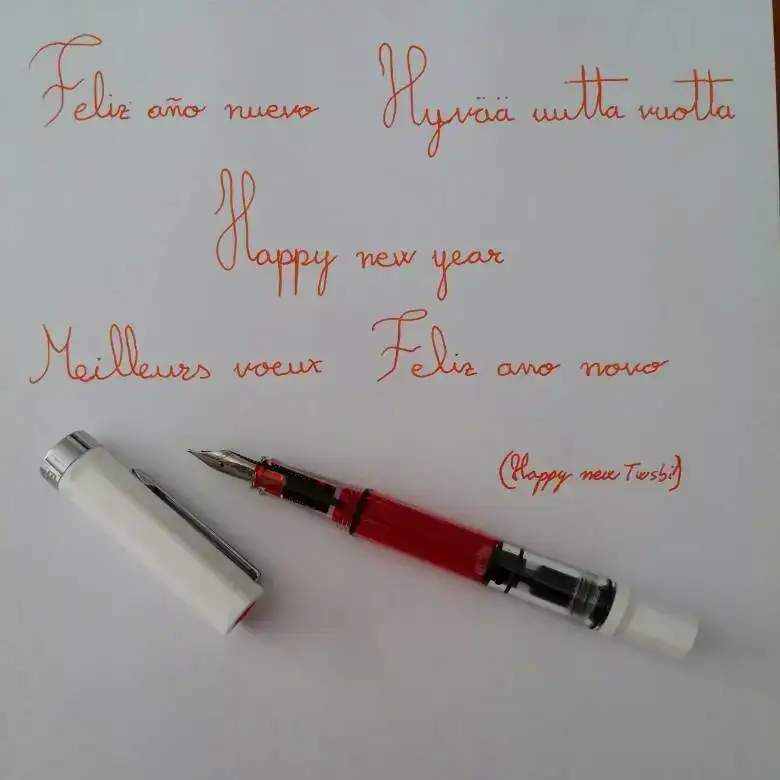 Feliz año nuevo Hyvää uutta vuotta
Happy new year
Meilleurs voeux Feliz ano novo
(Happy new Twsbi)